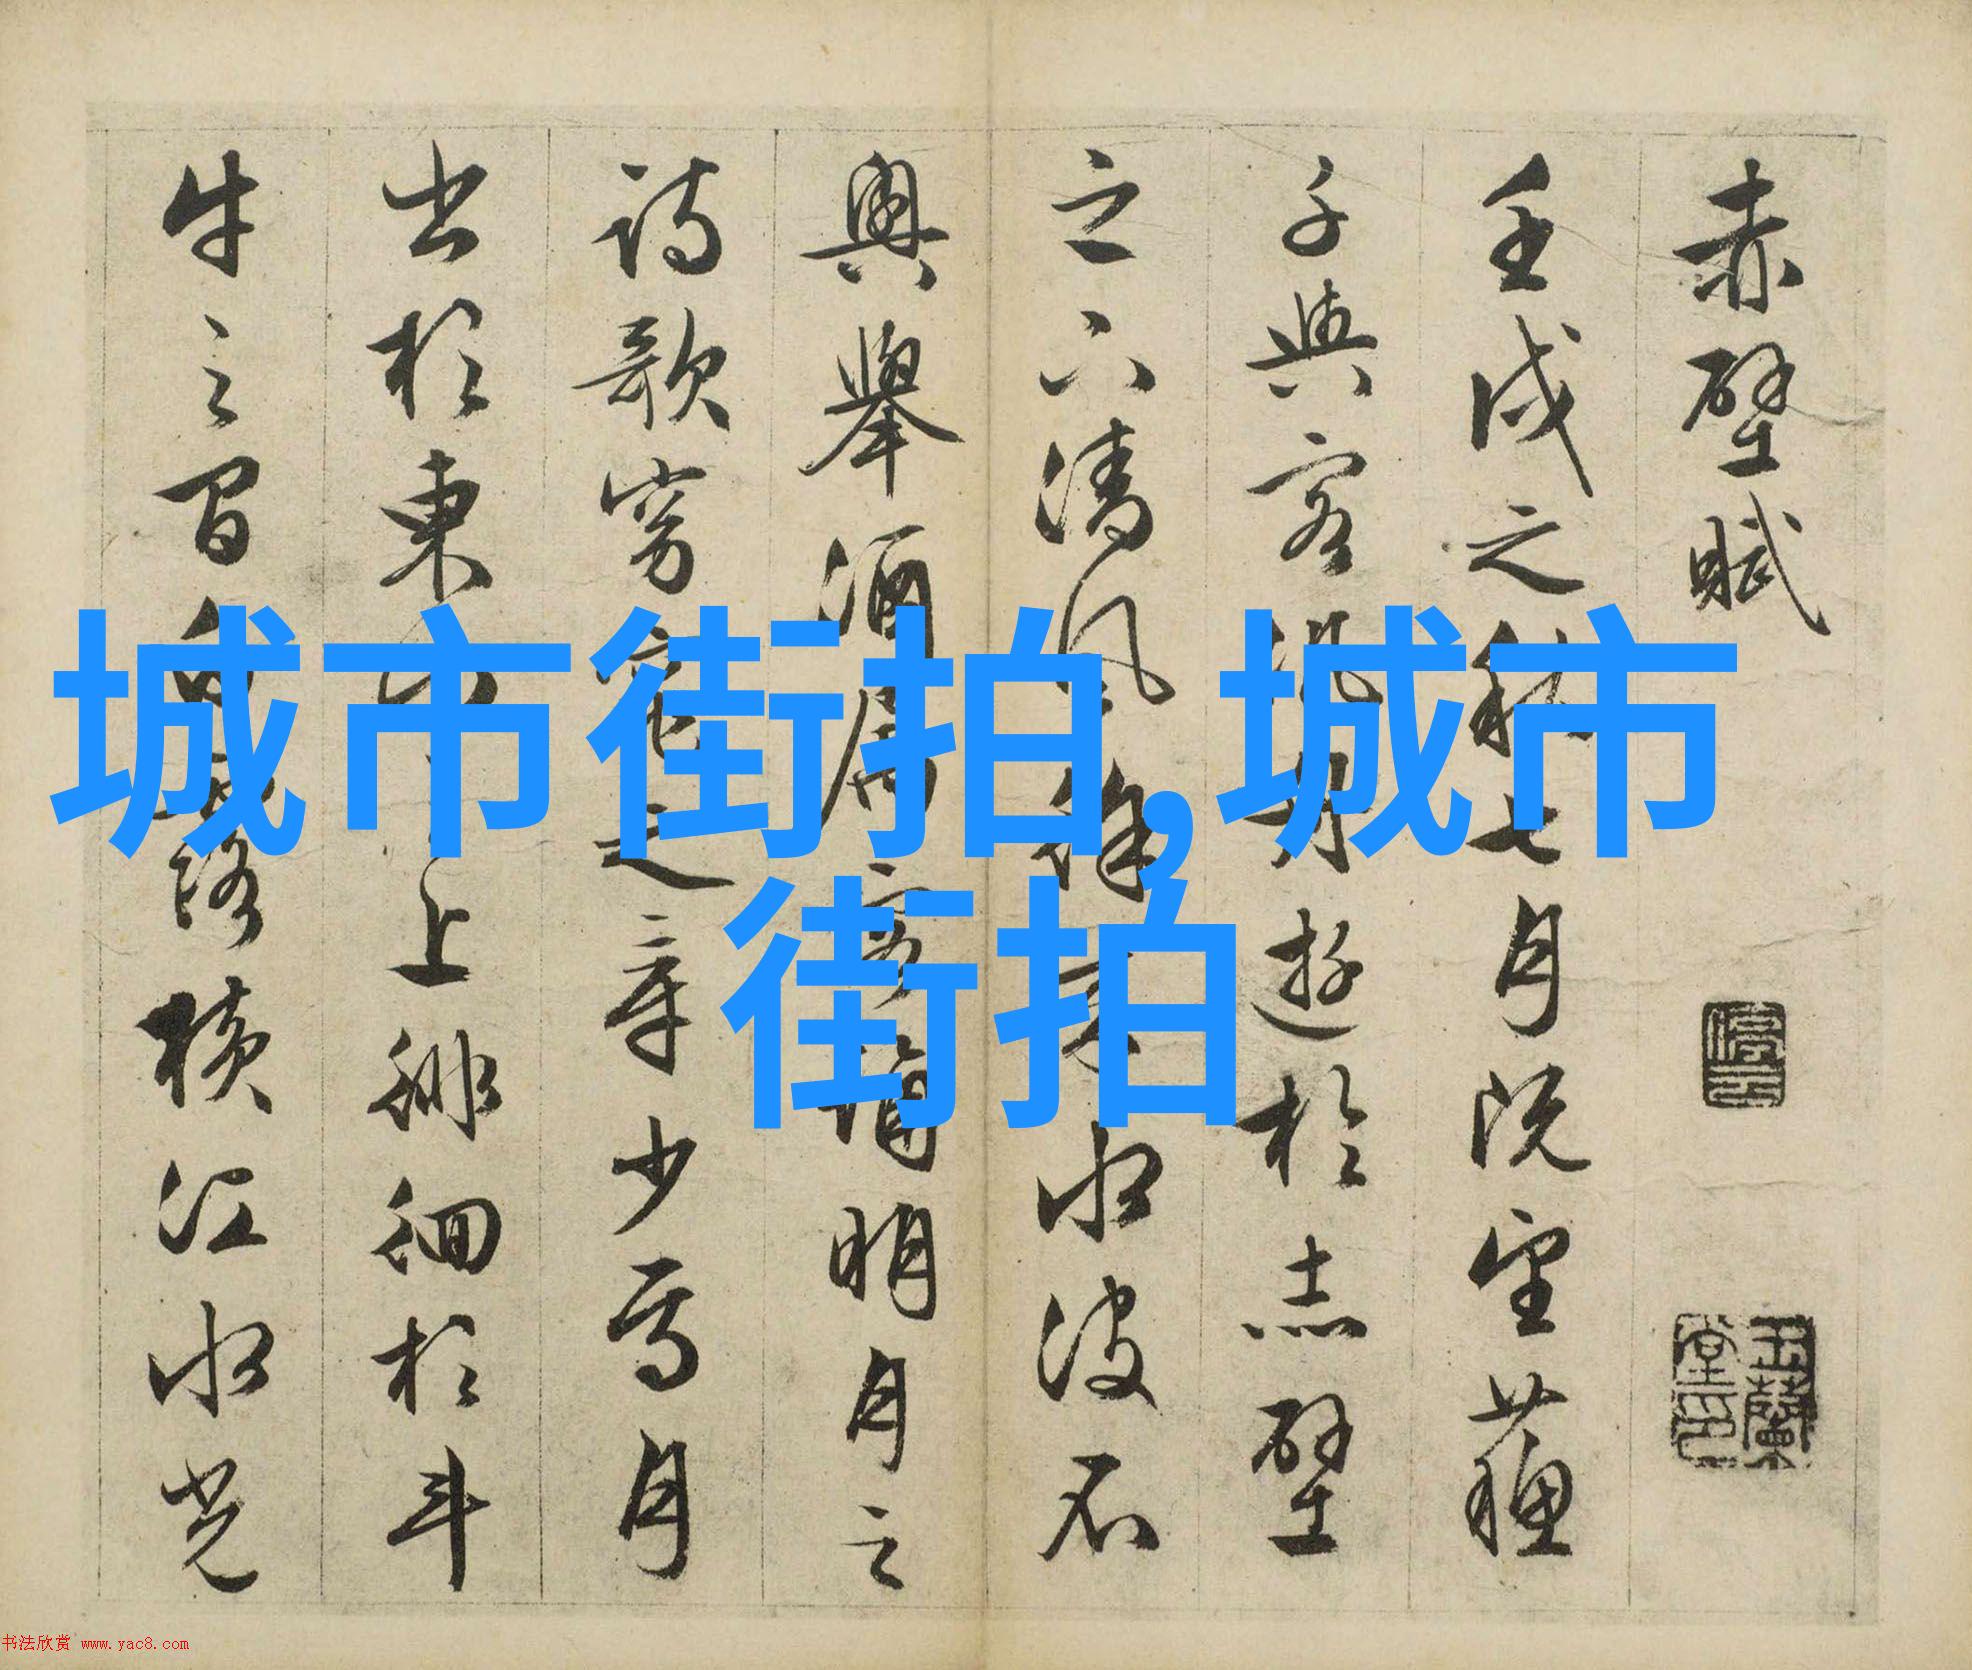 赤壁賦
停雲
玉蘭堂印
壬戌之秋七月既望蘇
子與客泛舟遊於赤壁
之下清風徐來水波不
興舉酒屬客誦明月之
詩歌窈窕之章少焉月
出於東山上徘徊於斗
牛之間白露橫江水光
城市街拍,城市
街拍
书法欣赏 www.yac8.com